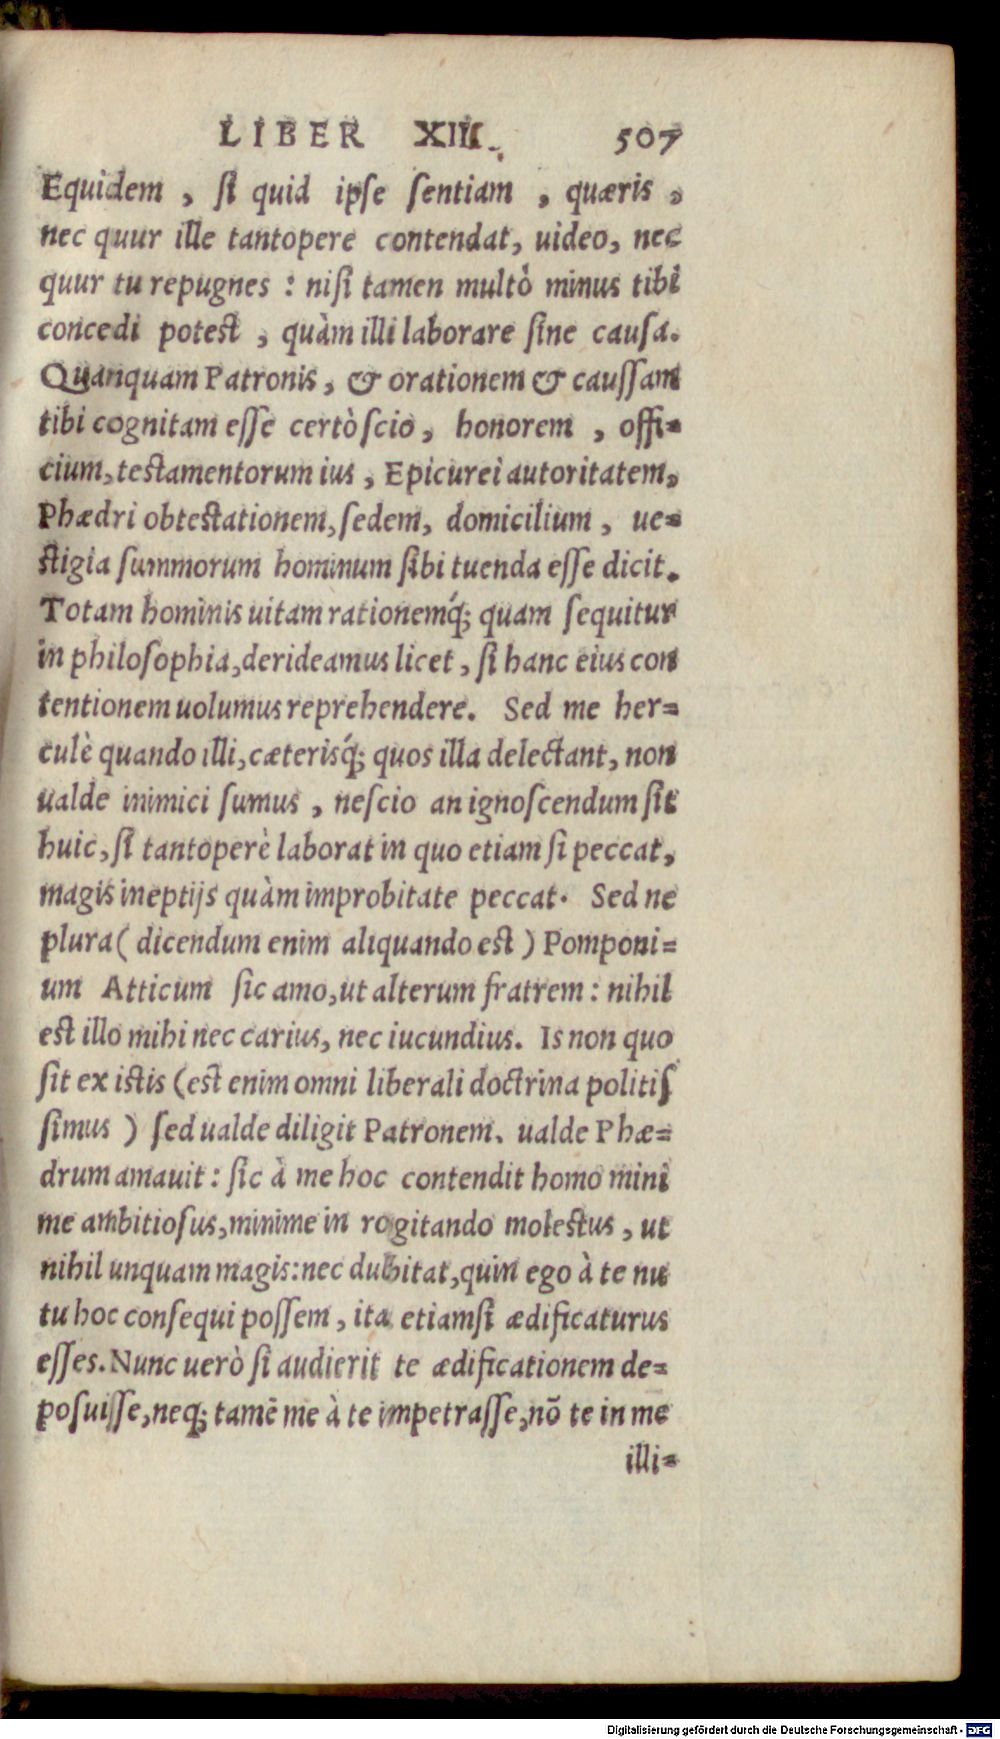 LIBER XIII. 507
Equidem, si quid ipse sentiam, quæris,
nec quur ille tantopere contendat, uideo, nec
quur tu repugnes: nisi tamen multò minus tibi
concedi potest, quàm illi laborare sine causa.
Quanquam Patronis, & orationem & caussam
tibi cognitam esse certò scio, honorem, offi=
cium, testamentorum ius, Epicurei autoritatem,
Phædri obtestationem, sedem, domicilium, ue=
stigia summorum hominum sibi tuenda esse dicit.
Totam hominis uitam rationemq́; quam sequitur
in philosophia, derideamus licet, si hanc eius con
tentionem uolumus reprehendere. Sed me her=
culè quando illi, cæterisq́; quos illa delectant, non
ualde inimici sumus, nescio an ignoscendum sit
huic, si tantoperè laborat in quo etiam si peccat,
magis ineptijs quàm improbitate peccat. Sed ne
plura (dicendum enim aliquando est) Pomponi=
um Atticum sic amo, ut alterum fratrem: nihil
est illo mihi nec carius, nec iucundius. Is non quo
sit ex istis (est enim omni liberali doctrina politis
simus) sed ualde diligit Patronem. ualde Phæ=
drum amauit: sic à me hoc contendit homo mini
me ambitiosus, minime in rogitando molestus, ut
nihil unquam magis: nec dubitat, quin ego à te nu
tu hoc consequi possem, ita etiamsi ædificaturus
esses. Nunc uerò si audierit te ædificationem de=
posuisse, neq; tamē me à te impetrasse, nō te in me
illi=
Digitalisierung gefördert durch die Deutsche Forschungsgemeinschaft - DFG